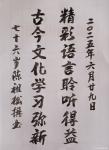 二〇二五年六月廿九日
精彩语言聆听得益
古今文化学习弥新
七十六岁陈祖松撰书